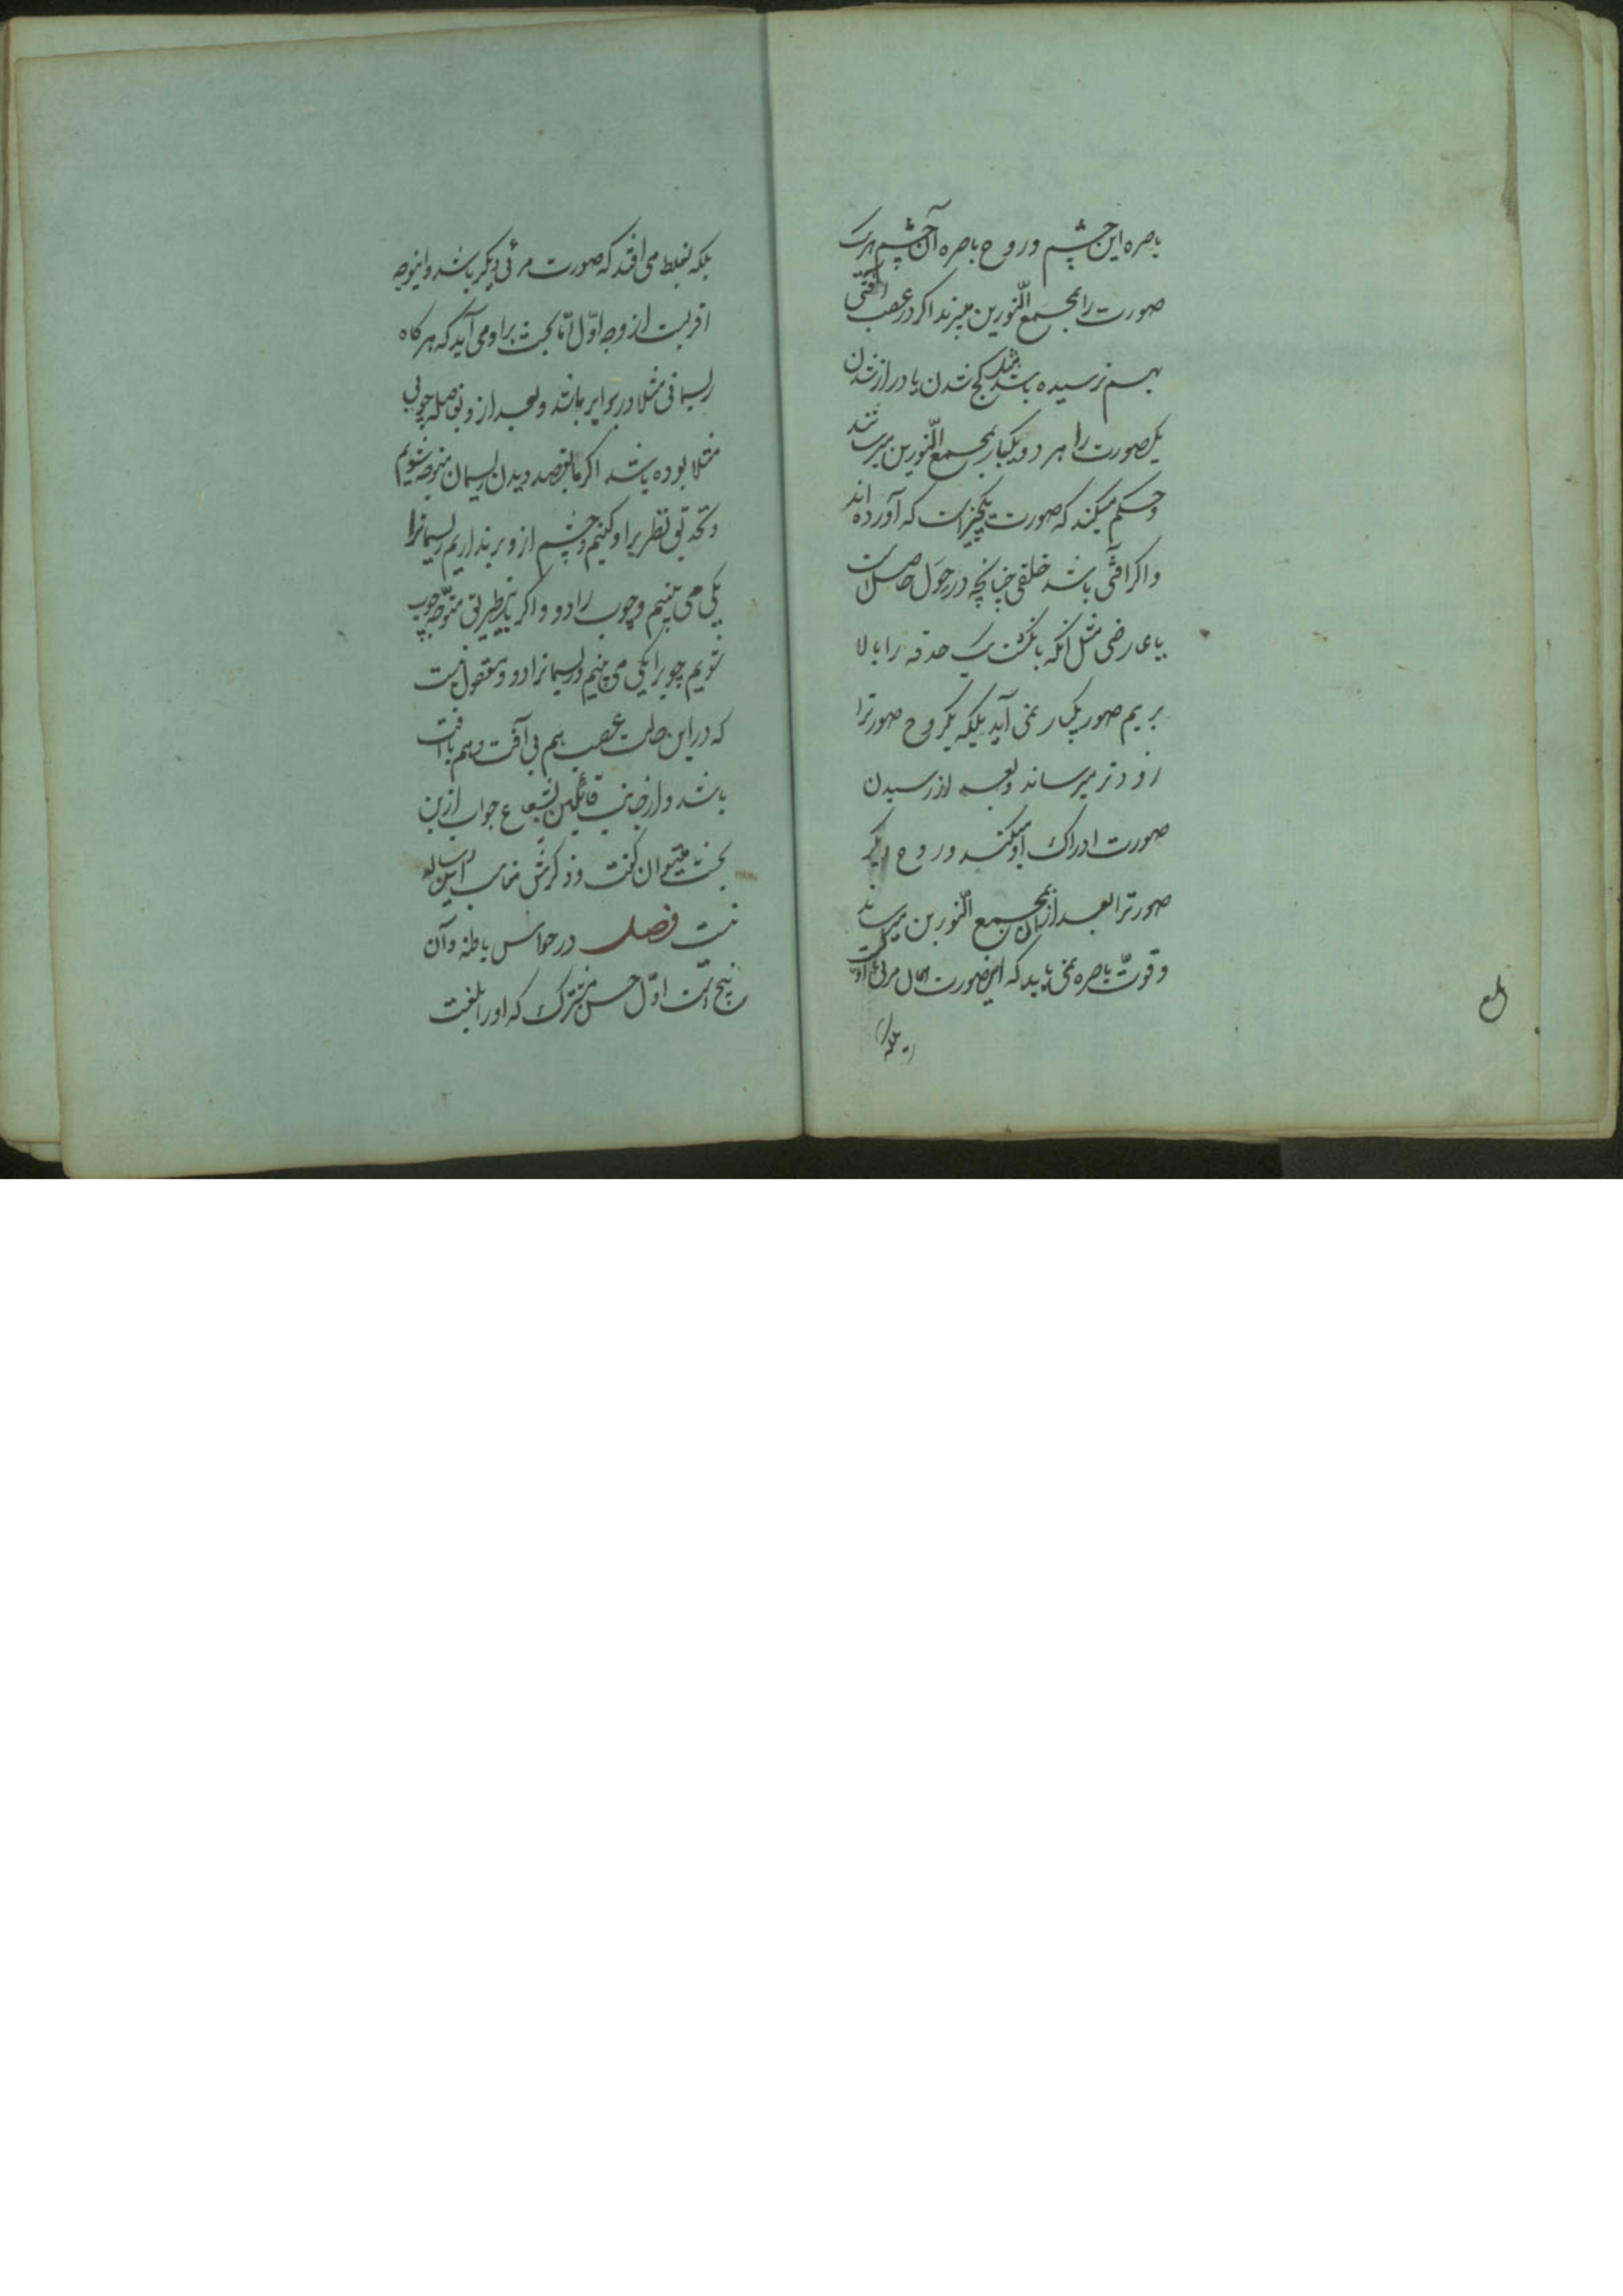 باصره این چشم و روح باصره آن چشم هریک
صورت را بمجمع النّورین میبرند اکر در عصب آفتی
بهم نرسیده باشد مثل کج شدن یا دراز شدن
یکصورت را هر دو یکبار بمجمع النّورین میرسانند
و حکم میکند که صورت یکچیز است که آورده اند
و اکر آفتی باشد خلقی چنانچه در حَوَل حاصل است
یا عارضی مثل انکه بانکشت یک حدقه را بالا
بریم صور یکبار نمی آید بلکه یکروح صورترا
زودتر میرساند و بعد از رسیدن
صورت ادراک او میکند و روح دیکر
صورترا بعد از آن بمجمع النّورین میرساند
و قوّت باصره نمی یابد که این صورت همان مرئی اوّلست
بلکه
بلکه بغلط می افتد که صورت مرئی دیکر باشد و اینوجه
اقربست از وجه اوّل امّا بحث براو می آید که هر کاه
ریسمانی مثلا در برابر ما باشد و بعد از و بفاصله چوبی
مثلا بوده باشد اکر ما بقصد دیدن ریسمان متوجه شویم
و تحدیق نظر براو کنیم و چشم از و بر نداریم ریسمانرا
یکی می بینیم و چوب را دو و اکر باینطریق متوجّه چوب
شویم چوبرا یکی می بینیم و ریسمانرا دو و معقول نیست
که در این حالت عصب هم بی آفت و هم با آفت
باشد و از جانب قائلین بشعاع جواب ازین
بحث میتوان کفت و ذکرش مناسب این رساله
نیست فصل در حواس باطنه و آن
پنج است اوّل حس مشترک که او را بلغت